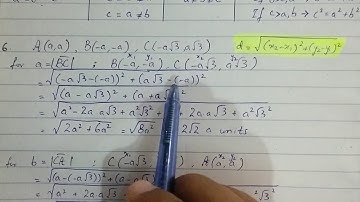 c = a ≠ b
If c>a,b → c² = a²+b²
6. A(a,a), B(-a,-a), C(-a√3, a√3)
d = √(x₂-x₁)² + (y₂-y₁)²
for a = |BC| : B(-a,-a), C(-a√3, a√3)
= √(-a√3-(-a))² + (a√3-(-a))²
= √(a-a√3)² + (a+a√3)²
= √a² - 2a a√3 + a²√3² + a² + 2a a√3 + a²√3²
= √2a² + 6a² = √8a² = 2√2 a units
for b = |CA| : C(-a√3, a√3), A(a,a)
= √(a-(-a√3))² + (a-a√3)²
= √a² + 2a.a√3 + a²√3²